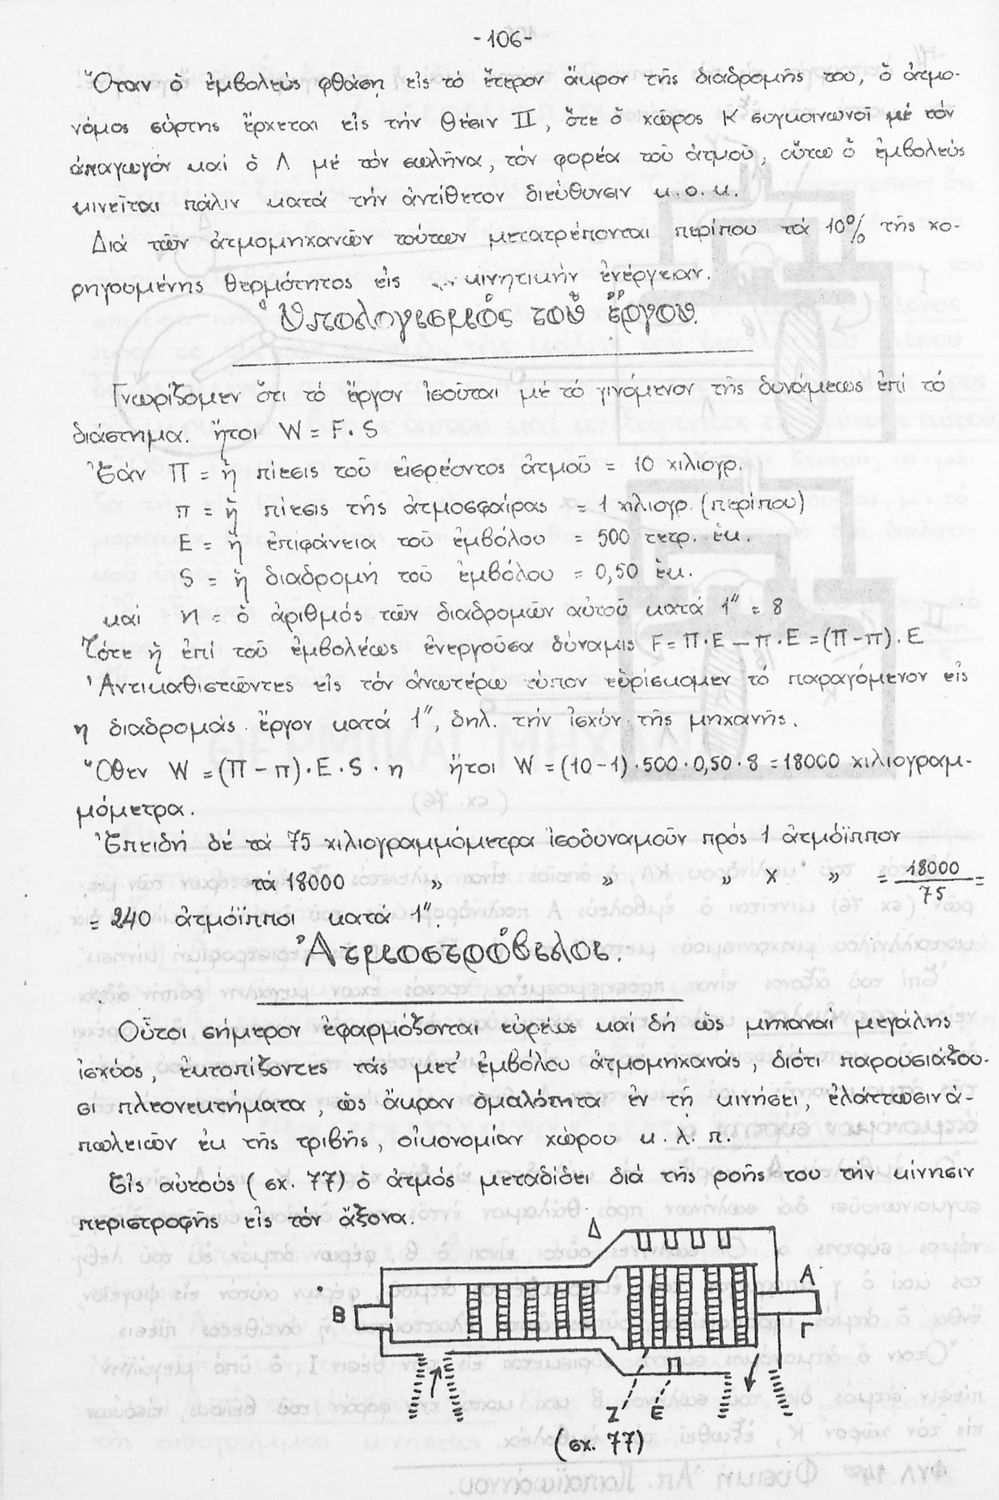 -106-
Ὅταν ὁ ἐμβολεύς φθάσῃ εἰς τό ἕτερον ἄκρον τῆς διαδρομῆς του, ὁ ἀτμο-
νόμος σύρτης ἔρχεται εἰς τήν θέσιν ΙΙ, ὅτε ὁ χῶρος Κ συγκοινωνεῖ μέ τόν
ἀπαγωγόν καί ὁ Λ μέ τόν σωλῆνα, τόν φορέα τοῦ ἀτμοῦ, οὕτω ὁ ἐμβολεύς
κινεῖται πάλιν κατά τήν ἀντίθετον διεύθυνσιν κ.ο.κ.
Διά τῶν ἀτμομηχανῶν τούτων μετατρέπονται περίπου τά 10% τῆς χο-
ρηγουμένης θερμότητος εἰς κινητικήν ἐνέργειαν.
Ὑπολογισμός τοῦ ἔργου.
Γνωρίζομεν ὅτι τό ἔργον ἰσοῦται μέ τό γινόμενον τῆς δυνάμεως ἐπί τό
διάστημα. ἤτοι W = F . S
Ἐάν Π = ἡ πίεσις τοῦ εἰσρέοντος ἀτμοῦ = 10 χιλιογρ.
π = ἡ πίεσις τῆς ἀτμοσφαίρας = 1 χιλιογρ. (περίπου)
Ε = ἡ ἐπιφάνεια τοῦ ἐμβόλου = 500 τετρ. ἑκ.
S = ἡ διαδρομή τοῦ ἐμβόλου = 0,50 ἑκ.
καί η = ὁ ἀριθμός τῶν διαδρομῶν αὐτοῦ κατά 1" = 8
Τότε ἡ ἐπί τοῦ ἐμβολέως ἐνεργοῦσα δύναμις F = Π·Ε – π·Ε = (Π-π).Ε
Ἀντικαθιστῶντες εἰς τόν ἀνωτέρω τύπον εὑρίσκομεν τό παραγόμενον εἰς
η διαδρομάς ἔργον κατά 1", δηλ. τήν ἰσχύν τῆς μηχανῆς.
Ὅθεν W = (Π – π)·Ε·S·η ἤτοι W = (10-1)·500·0,50·8 = 18000 χιλιογραμ-
μόμετρα.
Ἐπειδή δέ τά 75 χιλιογραμμόμετρα ἰσοδυναμοῦν πρός 1 ἀτμόϊππον
τά 18000 „ „ „ x „ = 18000/75 =
= 240 ἀτμόϊπποι κατά 1".
Ἀτμοστρόβιλοι.
Οὗτοι σήμερον ἐφαρμόζονται εὐρέως καί δή ὡς μηχαναί μεγάλης
ἰσχύος, ἐκτοπίζοντες τάς μετ' ἐμβόλου ἀτμομηχανάς, διότι παρουσιάζου-
σι πλεονεκτήματα, ὡς ἄκραν ὁμαλότητα ἐν τῇ κινήσει, ἐλάττωσιν ἀ-
πωλειῶν ἐκ τῆς τριβῆς, οἰκονομίαν χώρου κ.λ.π.
Εἰς αὐτούς (σχ. 77) ὁ ἀτμός μεταδίδει διά τῆς ροῆς του τήν κίνησιν
περιστροφῆς εἰς τόν ἄξονα.
Δ
Α
Β
Γ
Ζ Ε
(σχ. 77)